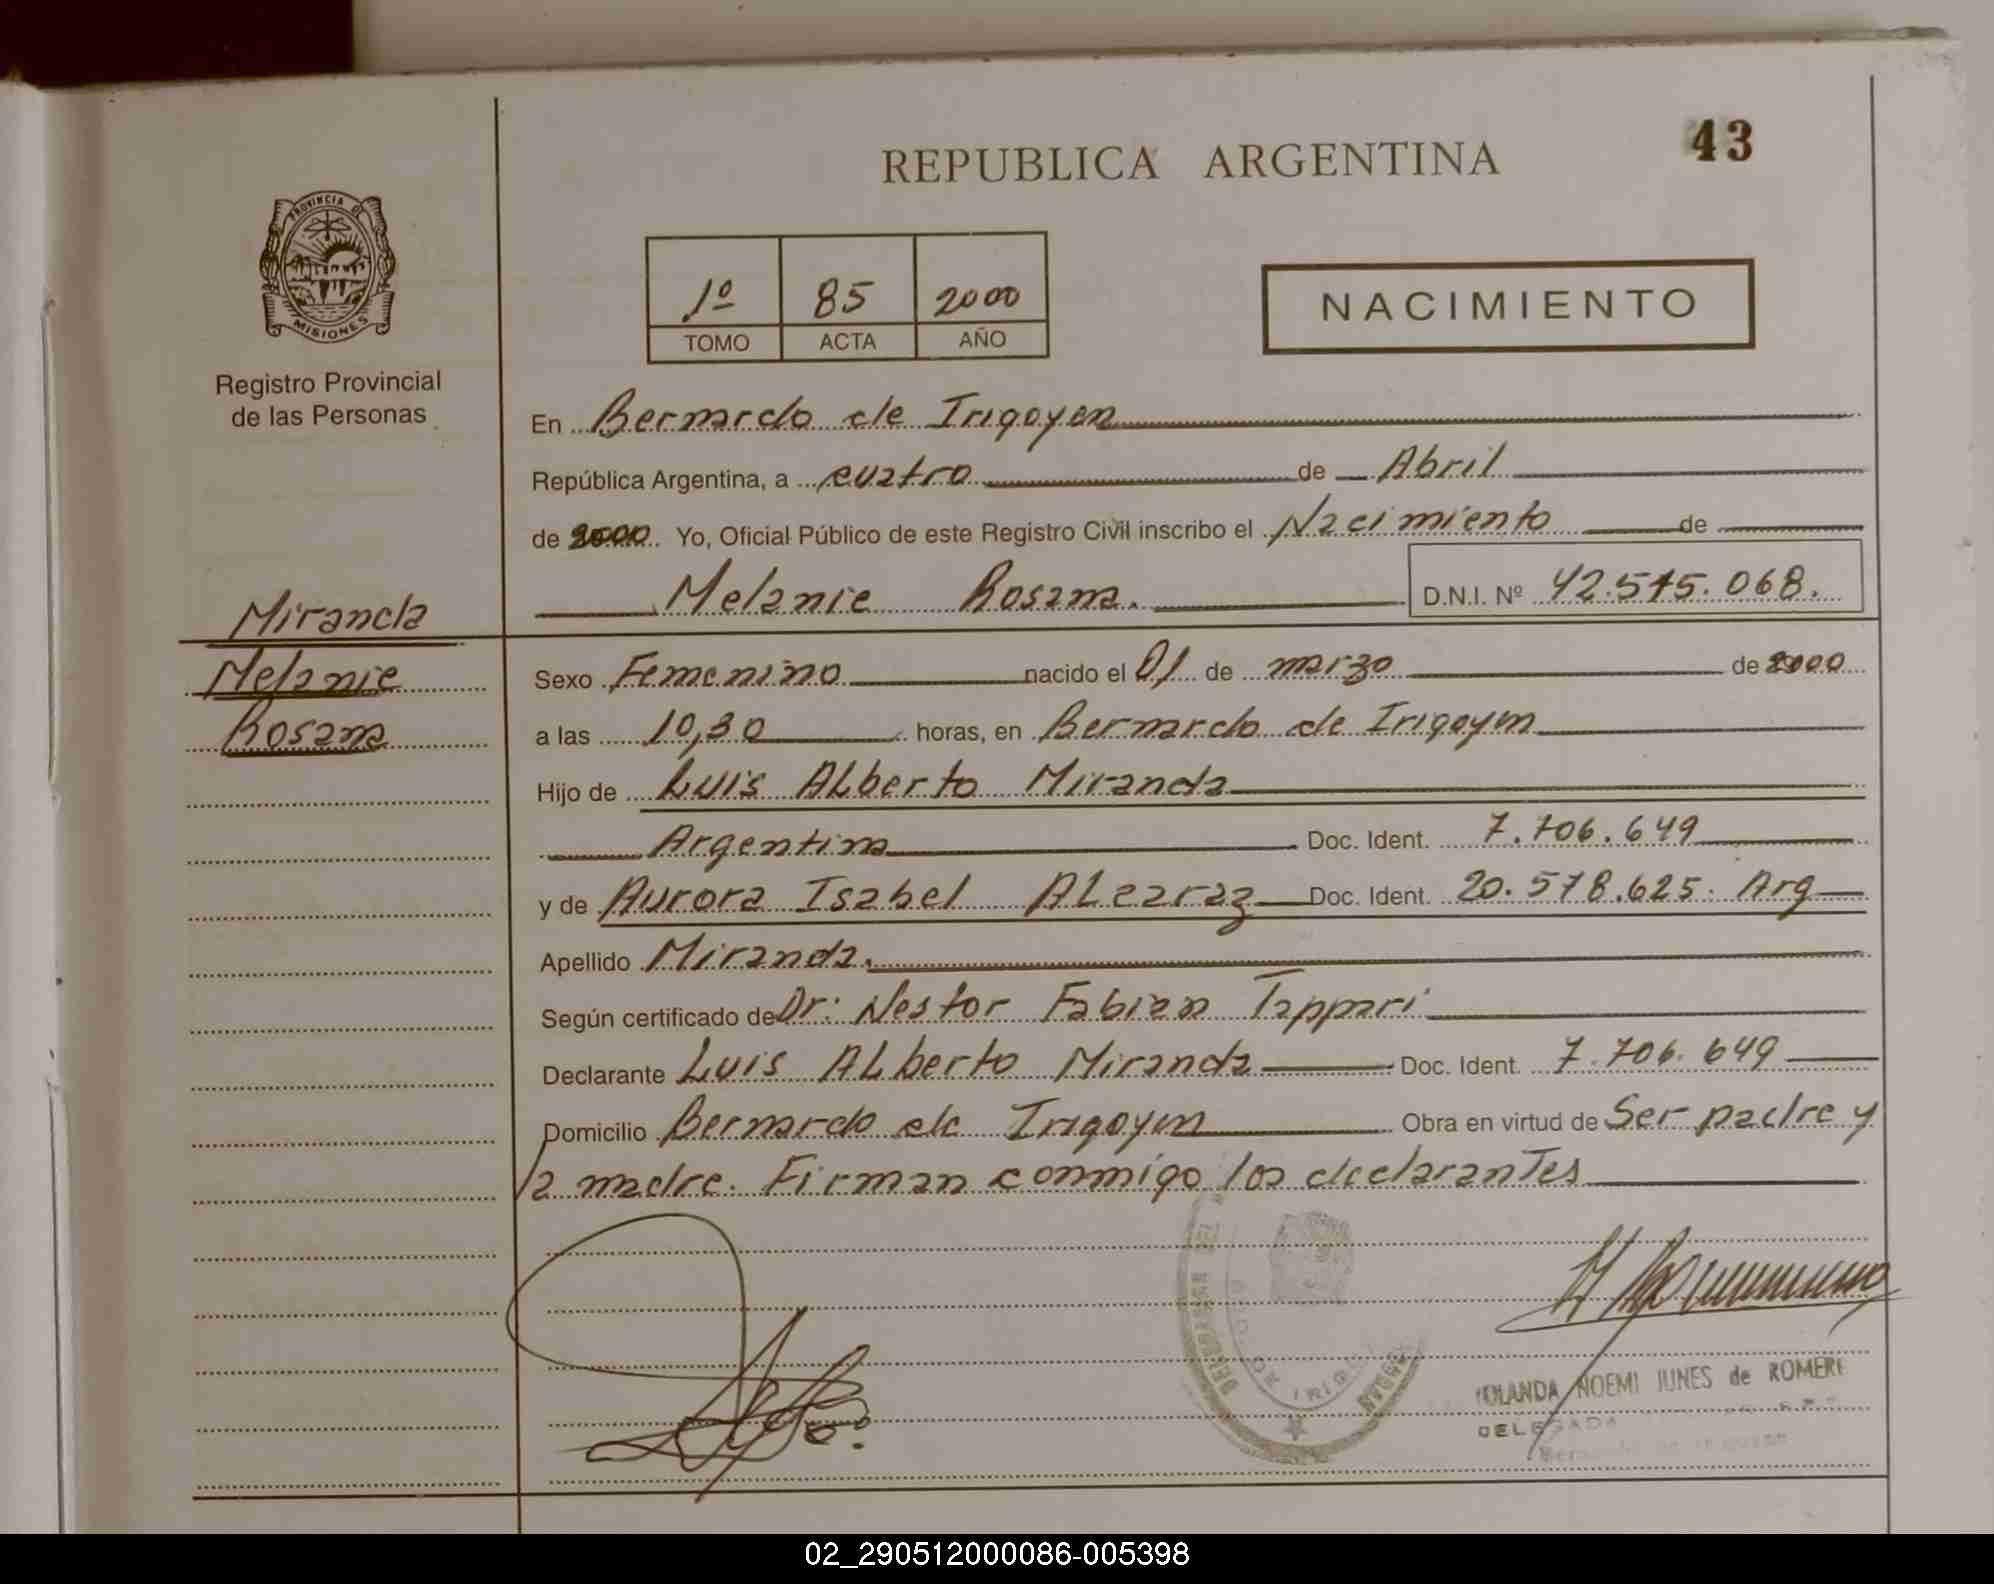 REPUBLICA ARGENTINA
43
PROVINCIA DE
MISIONES
Registro Provincial
de las Personas
1º 85 2000
TOMO ACTA AÑO
NACIMIENTO
En Bernardo de Irigoyen
República Argentina, a cuatro de Abril
de 2000. Yo, Oficial Público de este Registro Civil inscribo el Nacimiento de
Melanie Rosana. D.N.I. Nº 42.515.068.
Miranda
Melanie
Rosana
Sexo Femenino nacido el 01 de marzo de 2000
a las 10,30 horas, en Bernardo de Irigoyen
Hijo de Luis Alberto Miranda
Argentina Doc. Ident. 7.706.649
y de Aurora Isabel Alcaraz Doc. Ident. 20.578.625. Arg
Apellido Miranda.
Según certificado de Dr: Nestor Fabian Tappari
Declarante Luis Alberto Miranda Doc. Ident. 7.706.649
Domicilio Bernardo de Irigoyen Obra en virtud de Ser padre y
la madre. Firman conmigo los declarantes
NOEMI JUNES de ROMERO
DELEGADA